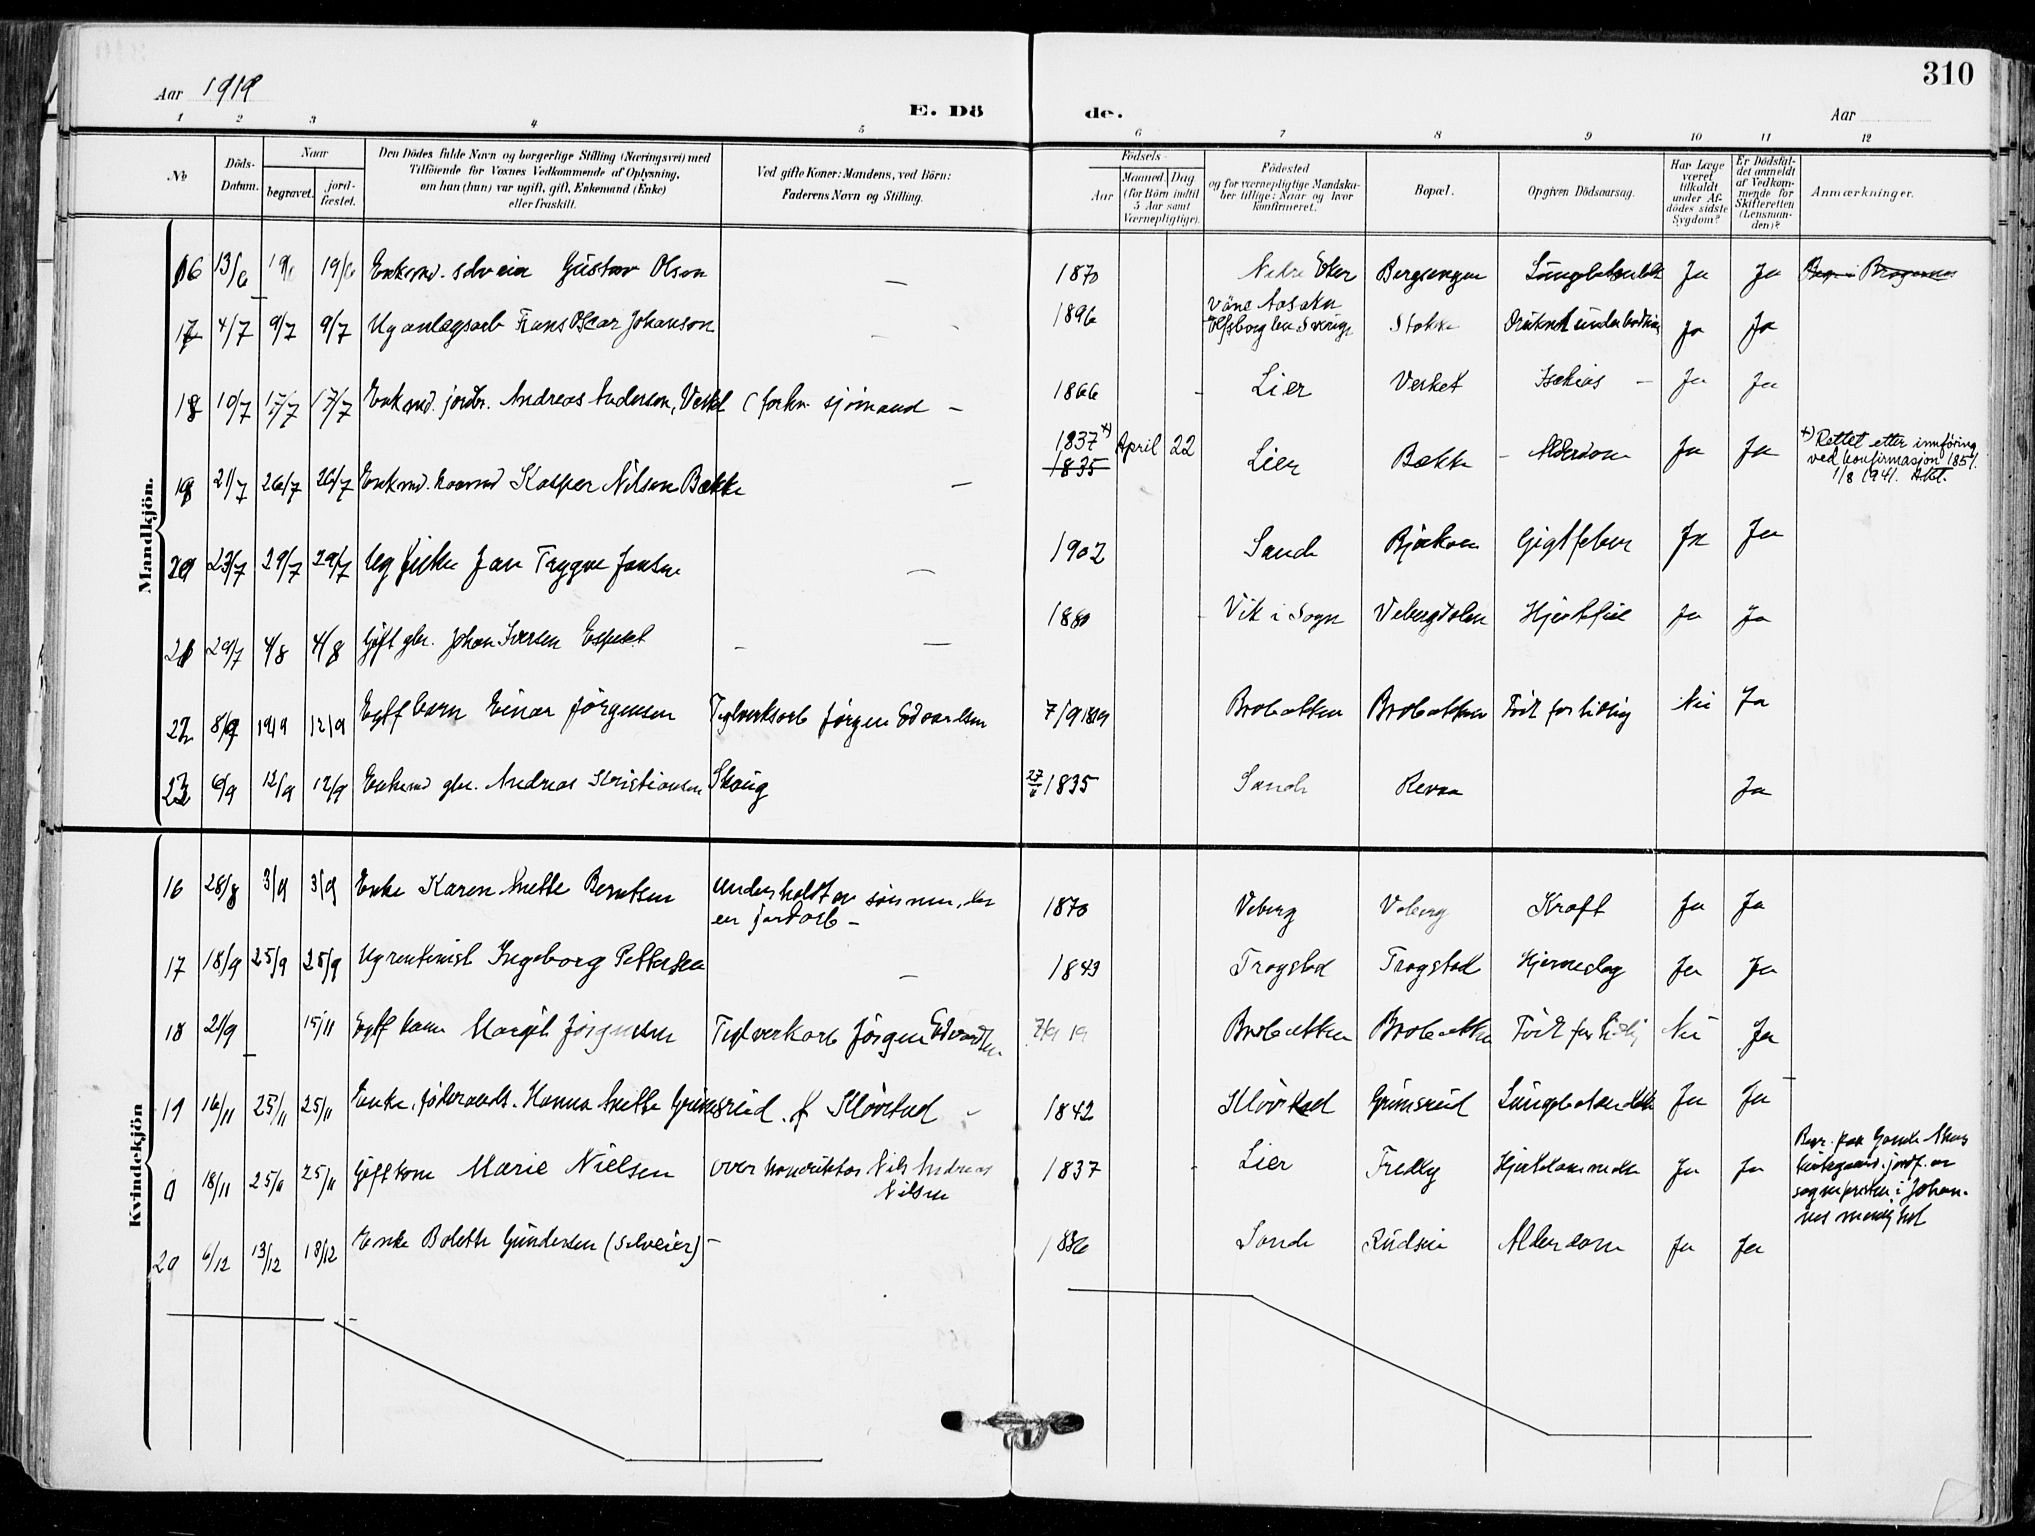 310
Aar 1919
E. Dö
de.
Aar
1 2 3 4 5 6 7 8 9 10 11 12
No
Döds-Datum.
Naar
begravet.
jord-fæstet.
Den Dödes fulde Navn og borgerlige Stilling (Næringsvei) med
Tilföiende for Voxnes Vedkommende af Oplysning,
om han (hun) var ugift, gift, Enkemand (Enke)
eller fraskilt.
Ved gifte Koner: Mandens, ved Börn:
Faderens Navn og Stilling.
Födsels-
Aar
Maaned. Dag
(for Börn indtil
5 Aar samt
Værnepligtige).
Födested
og for værnepligtige Mandska-
ber tillige: Naar og hvor
konfirmeret.
Bopæl.
Opgiven Dödsaarsag.
Har Læge
været
tilkaldt
under Af-
dödes sidste
Sygdom?
Er Dödsfal-
det anmeldt
af Vedkom-
mende for
Skifteretten
(Lensman-
den)?
Anmærkninger.
Mandkjön.
16 13/6 19/6 19/6 Enkemd. selveier Gustav Olsen — 1870 Nedre Eker Bergsengen Ja Ja
17 4/7 9/7 9/7 Ug anlægsarb Frans Oscar Johanson 1896 Elfsborg len Sverige Stokke Druknet under badning Ja Ja
18 10/7 17/7 17/7 Enkemd. jordbr. Andreas Anderson, Verket (forhv. sjömand — 1866 Lier Verket Ischias — Ja Ja
19 21/7 26/7 26/7 Enkemd. Kasper Nilsen Bække — 1837 x) 1835 April 22 Lier Bække Alderdom Ja Ja
x) Rettet etter innføring
ved konfirmasjon 1851.
1/8 1941.
20 23/7 29/7 29/7 Ug Jan Trygve Jansen — 1902 Sande Gigtfeber Ja Ja
21 29/7 4/8 4/8 Gift gbr. Johan Iversen — 1880 Vik i Sogn Hjertefeil Ja Ja
22 8/9 12/9 12/9 Egtf barn Einar Jörgensen Teglverksarb Jörgen Edvardsen 7/9 1919 Brobakken Brobakken Födt for tidlig Nei Ja
23 6/9 12/9 12/9 Enkemd gbr. Andreas Kristiansen Skoug 1835 Sande Revaa Ja
Kvindekjön
16 28/8 3/9 3/9 Enke Karen Anette Berntsen underholdt av sönnen, der
er jordarb — 1870 Veberg Veberg Kræft Ja Ja
17 18/9 25/9 25/9 Ug rentenist Ingeborg Pettersen — 1843 Trogstad Trogstad Hjerneslag Ja Ja
18 21/9 15/11 Egtf barn Margit Jörgensen Teglverkarb Jörgen Edvardsen 7/9 19 Brobakken Brobakken Födt for tidlig Nei Ja
19 16/11 25/11 25/11 Enke, föderaads. Hanna Anette Grimsrud. f Klövstad 1842 Klövstad Grimsrud Ja Ja
0 18/11 25/11 25/11 Gift kone Marie Nielsen overkonduktör Nils Andreas
Nilsen 1837 Lier Ja Ja
20 6/12 13/12 18/12 Enke Bolette Gundersen (selveier) — 1836 Sande Alderdom Ja Ja